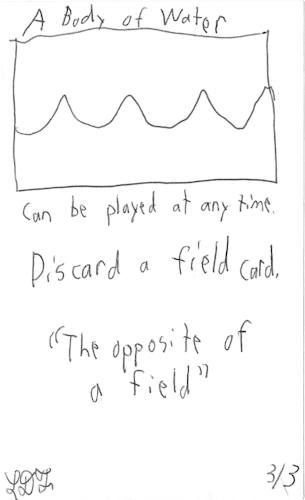 A Body of Water
Can be played at any time.
Discard a field card.
"The opposite of
a field"
3/3